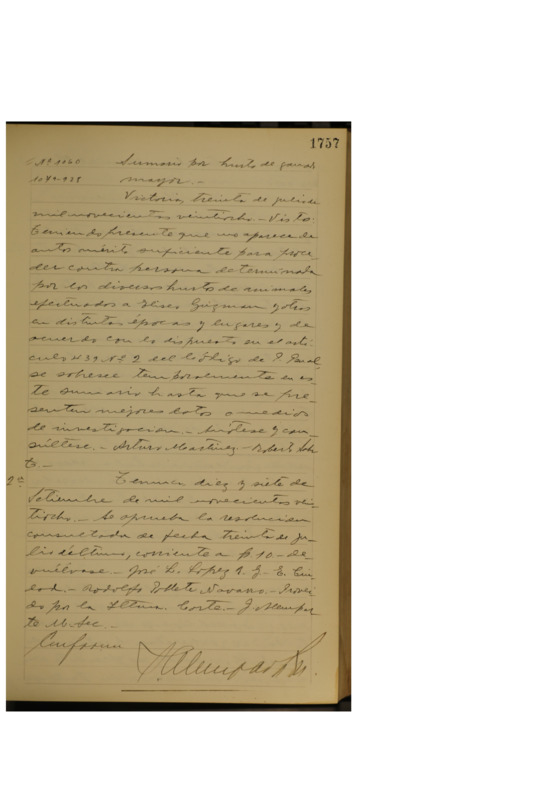 1757
Nº 1060 Sumario por hurto de ganado
mayor.-
Victoria, treinta de julio de
mil novecientos veintiocho.- Visto:
Teniendo presente que no aparece de
autos mérito suficiente para proce
der contra persona determinada
por los diversos hurtos de animales
efectuados a Eliseo Guzman y otros
en distintas épocas y lugares y de
acuerdo con lo dispuesto en el artí
culo 439 Nº 2 del Código de P. Penal,
se sobresee temporalmente en es
te sumario hasta que se pre
senten mejores datos o medios
de investigacion.- Anótese y con
súltese.- Arturo Martinez.- Roberto
to.-
2ª Temuco, diez y siete de
Setiembre de mil novecientos vei
tiocho.- Se aprueba la resolucion
consultada de fecha treinta de ju
lio último, corriente a f. 10.- De
vuélvase.- José L. Lopez
Rodolfo Navarro.- Provei
do por la Iltma. Corte.- J. Alempar
te M. Sec.-
Conforme